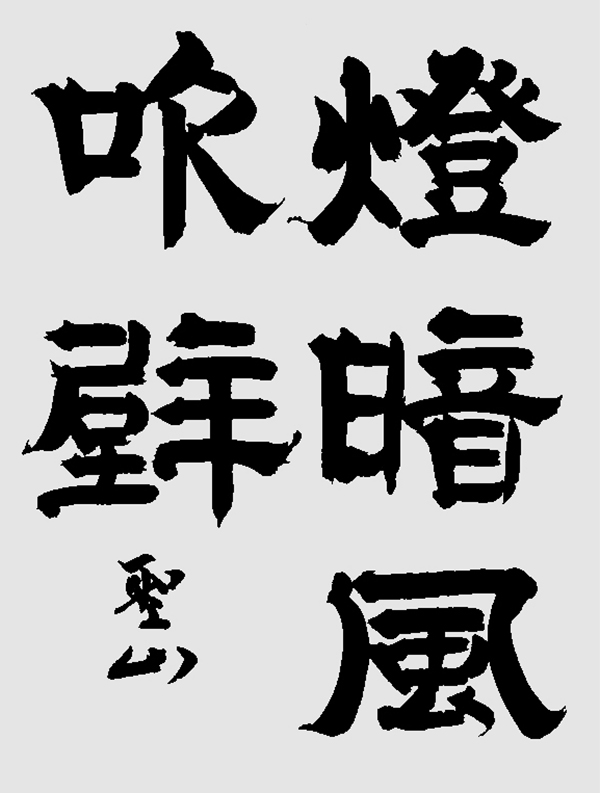 燈暗風
吹壁
聖山